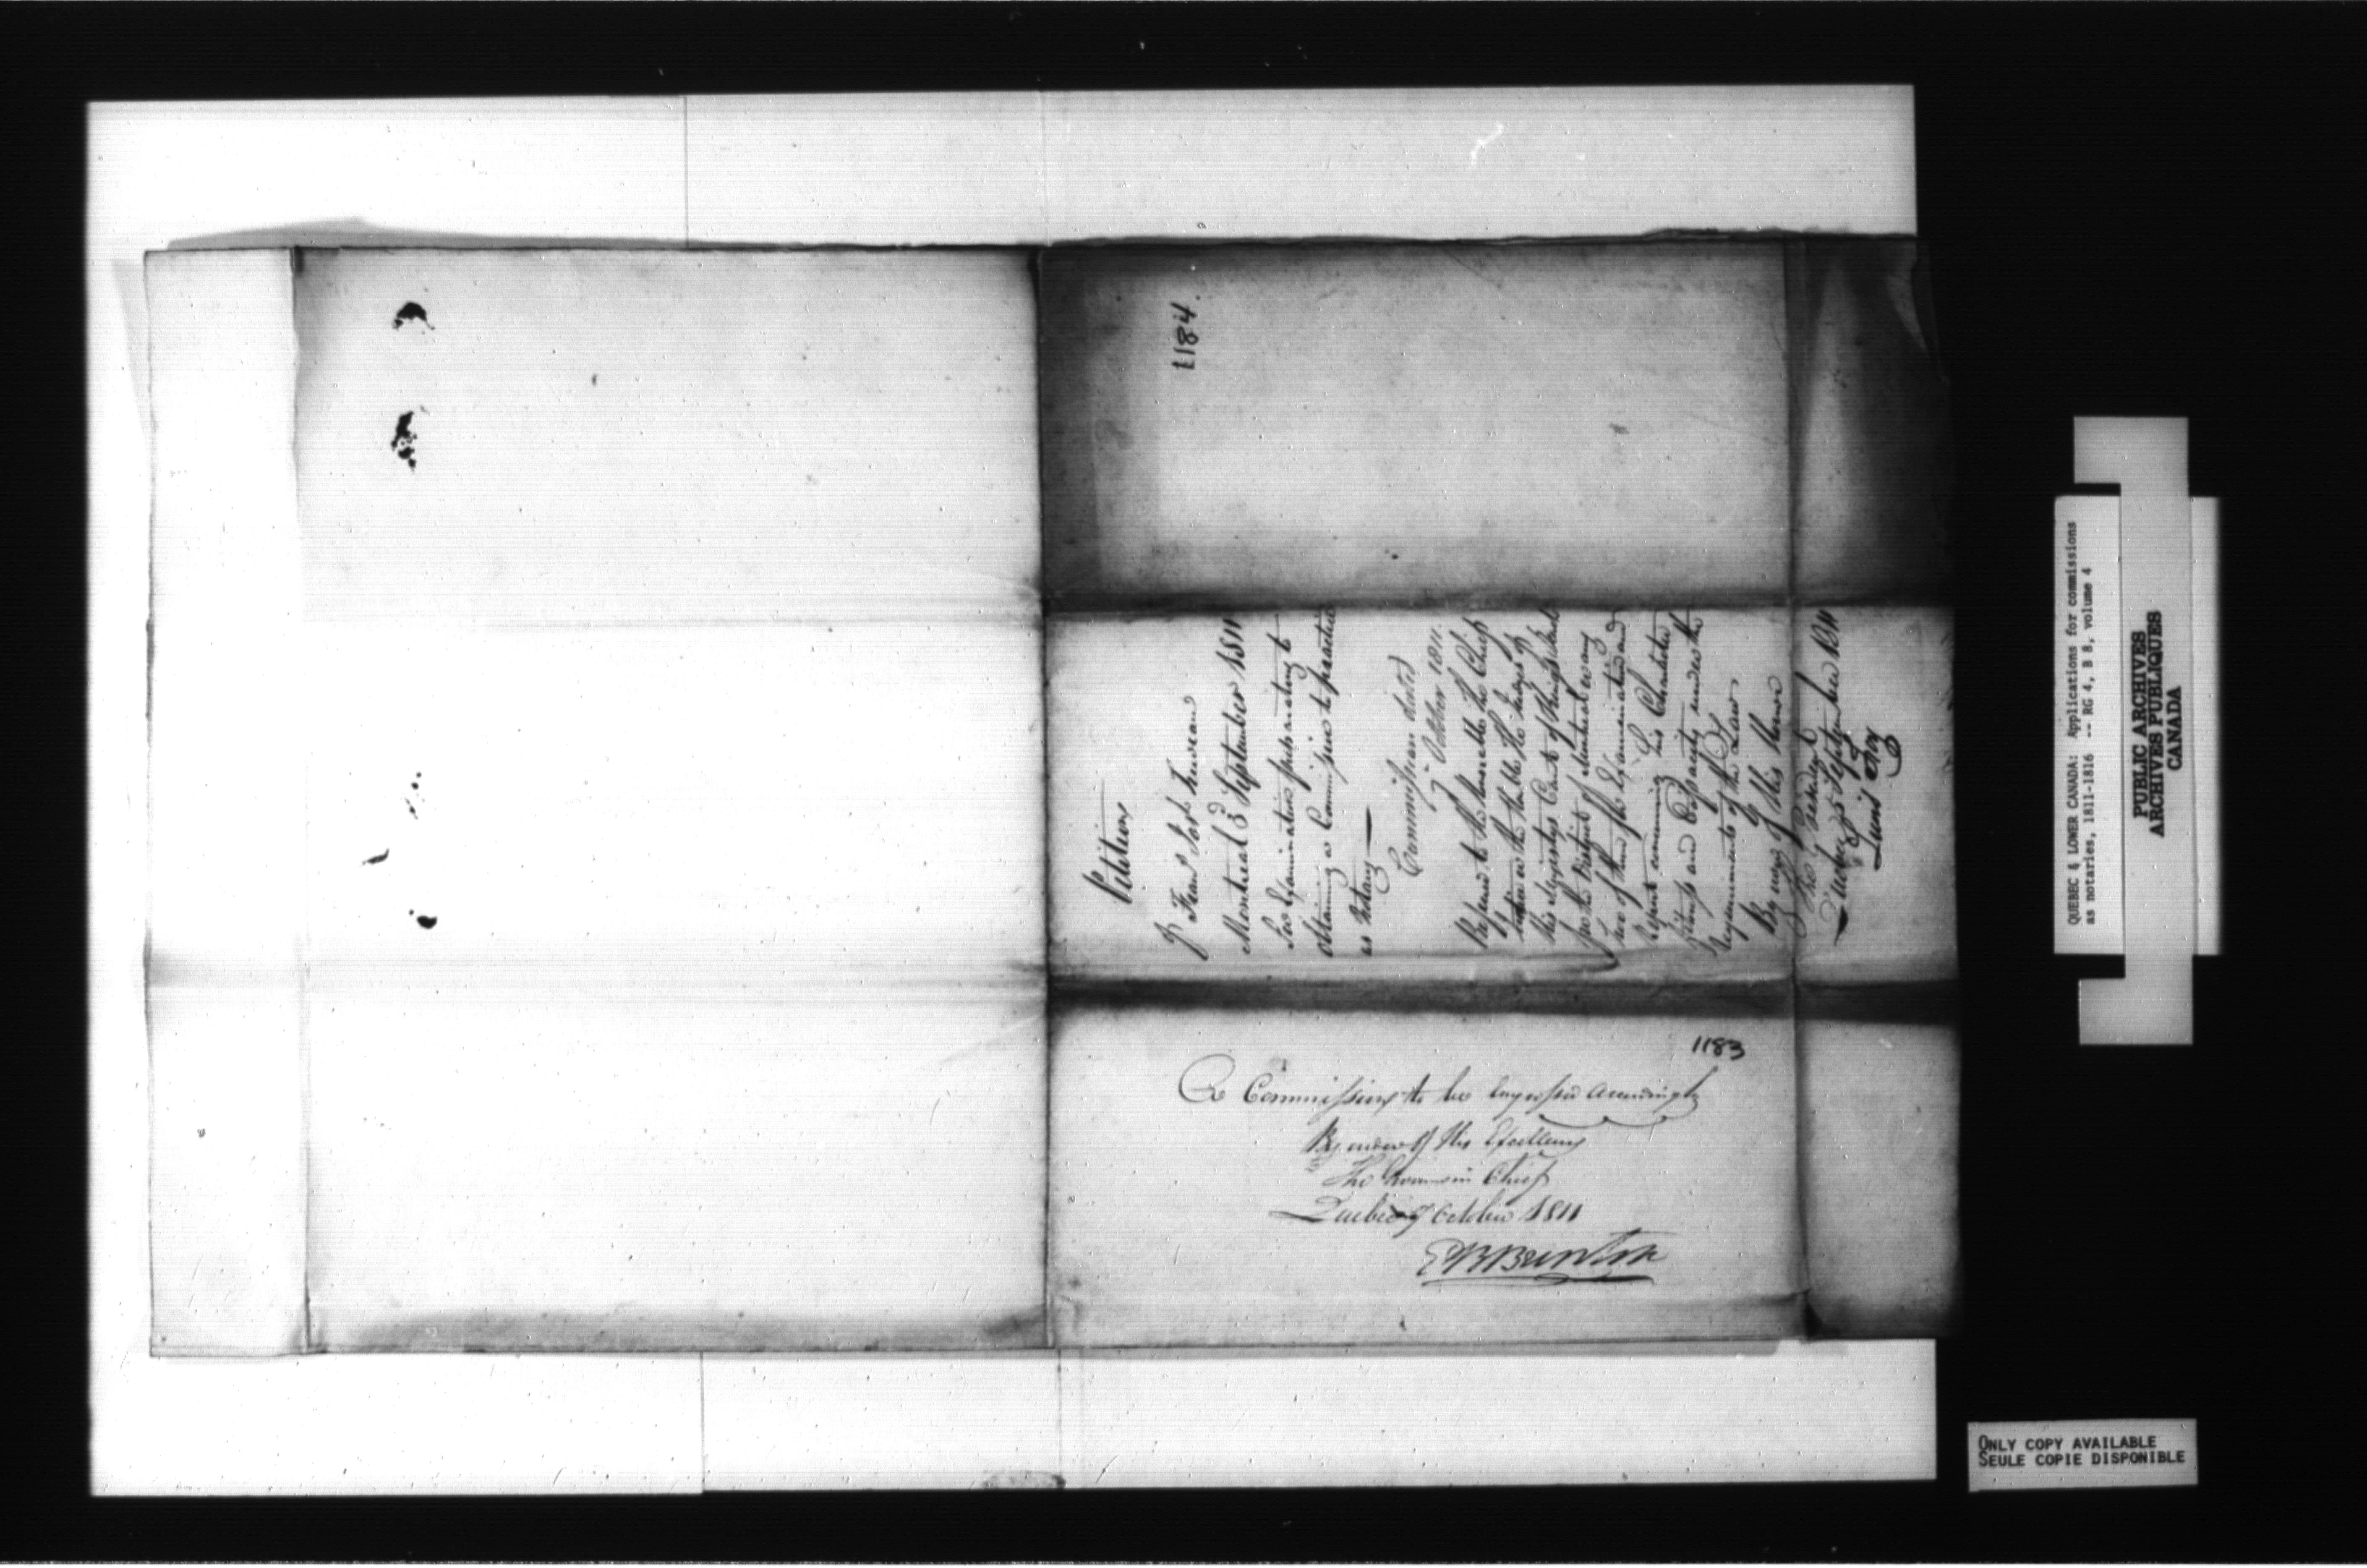 1184.
Petition
Montreal 3d September 1811
for Examination preparatory to
obtaining a Commission to practice
as Notary
Commission dated
7 October 1811.
Refered to the Honorable the Chief
His Majestys Court of Kings Bench
for the District of Montreal or any
Two of them for Examination and
Report concerning his Character
Fitness and Capacity under the
Requirements of the Law
By
The President
Quebec 25 September 1811
Louis Foy
1183
A Commission to be Engrossed accordingly
By order of His Excellency
The Governor in Chief
Quebec 7 October 1811
EBBrenton
QUEBEC & LOWER CANADA: Applications for commissions
as notaries, 1811-1816 -- RG 4, B 8, volume 4
PUBLIC ARCHIVES
ARCHIVES PUBLIQUES
CANADA
ONLY COPY AVAILABLE
SEULE COPIE DISPONIBLE